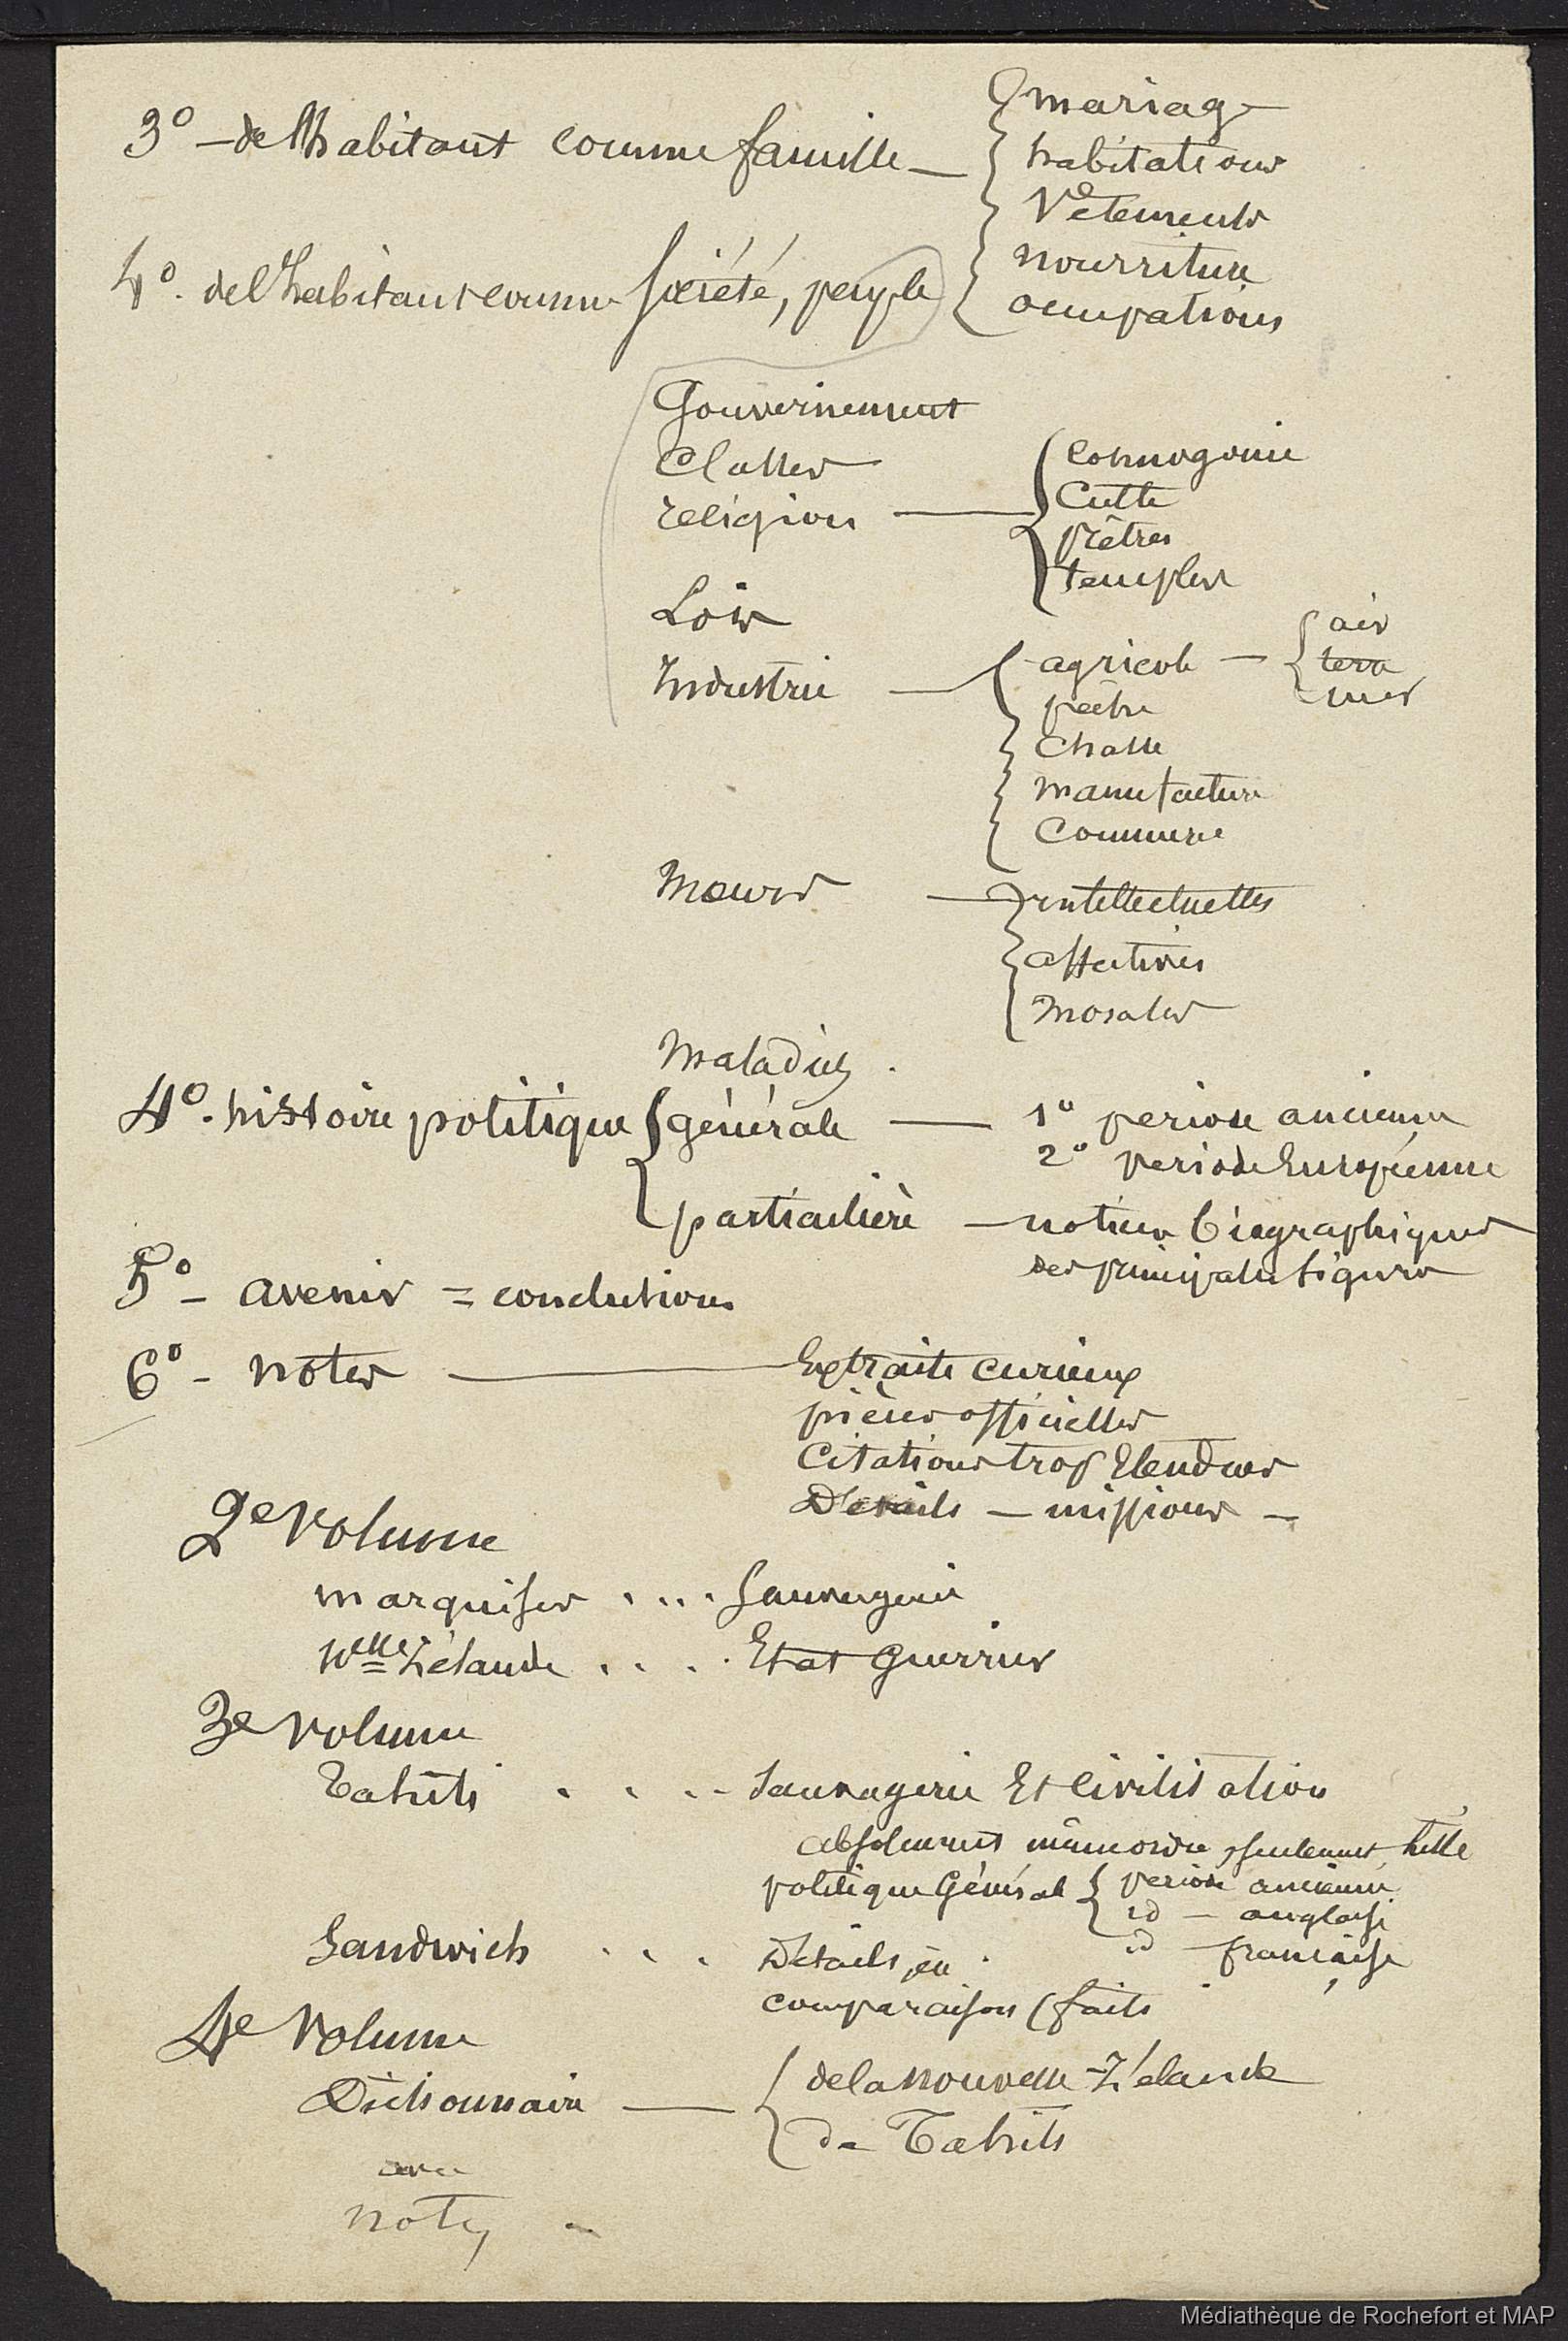 mariage
3º – de l'habitant comme famille –
habitations
Vêtements
nourriture
4º. de l'habitant comme Société, peuple
occupations
Gouvernement
Classes
Cosmogonie
religion —
Culte
prêtres
temples
Lois
air
Industrie — agricole — terre
mer
pêche
Chasse
manufacture
Commerce
Mœurs — intellectuelles
affectives
Morales
Maladies.
4º. histoire politique générale — 1º periode ancienne
2º periode Européenne
particulière — notices biographiques
des principales figures
5º – avenir = conclusions
6º – notes — Extraits curieux
pièces officielles
Citations trop Etendues
Détails – missions –
2e volume
marquises .... Sauvagerie
Nlle Zélande .... Etat Guerrier
3e volume
Tahiti .... Sauvagerie Et Civilisation
absolument même ordre, seulement hist
politique Général periode ancienne
id – anglaise
id – française
Sandwich ... Détails, en
comparaison (faits
4e Volume
Dictionnaire — de la Nouvelle-Zélande
de Tahiti
avec
notes –
Médiathèque de Rochefort et MAP